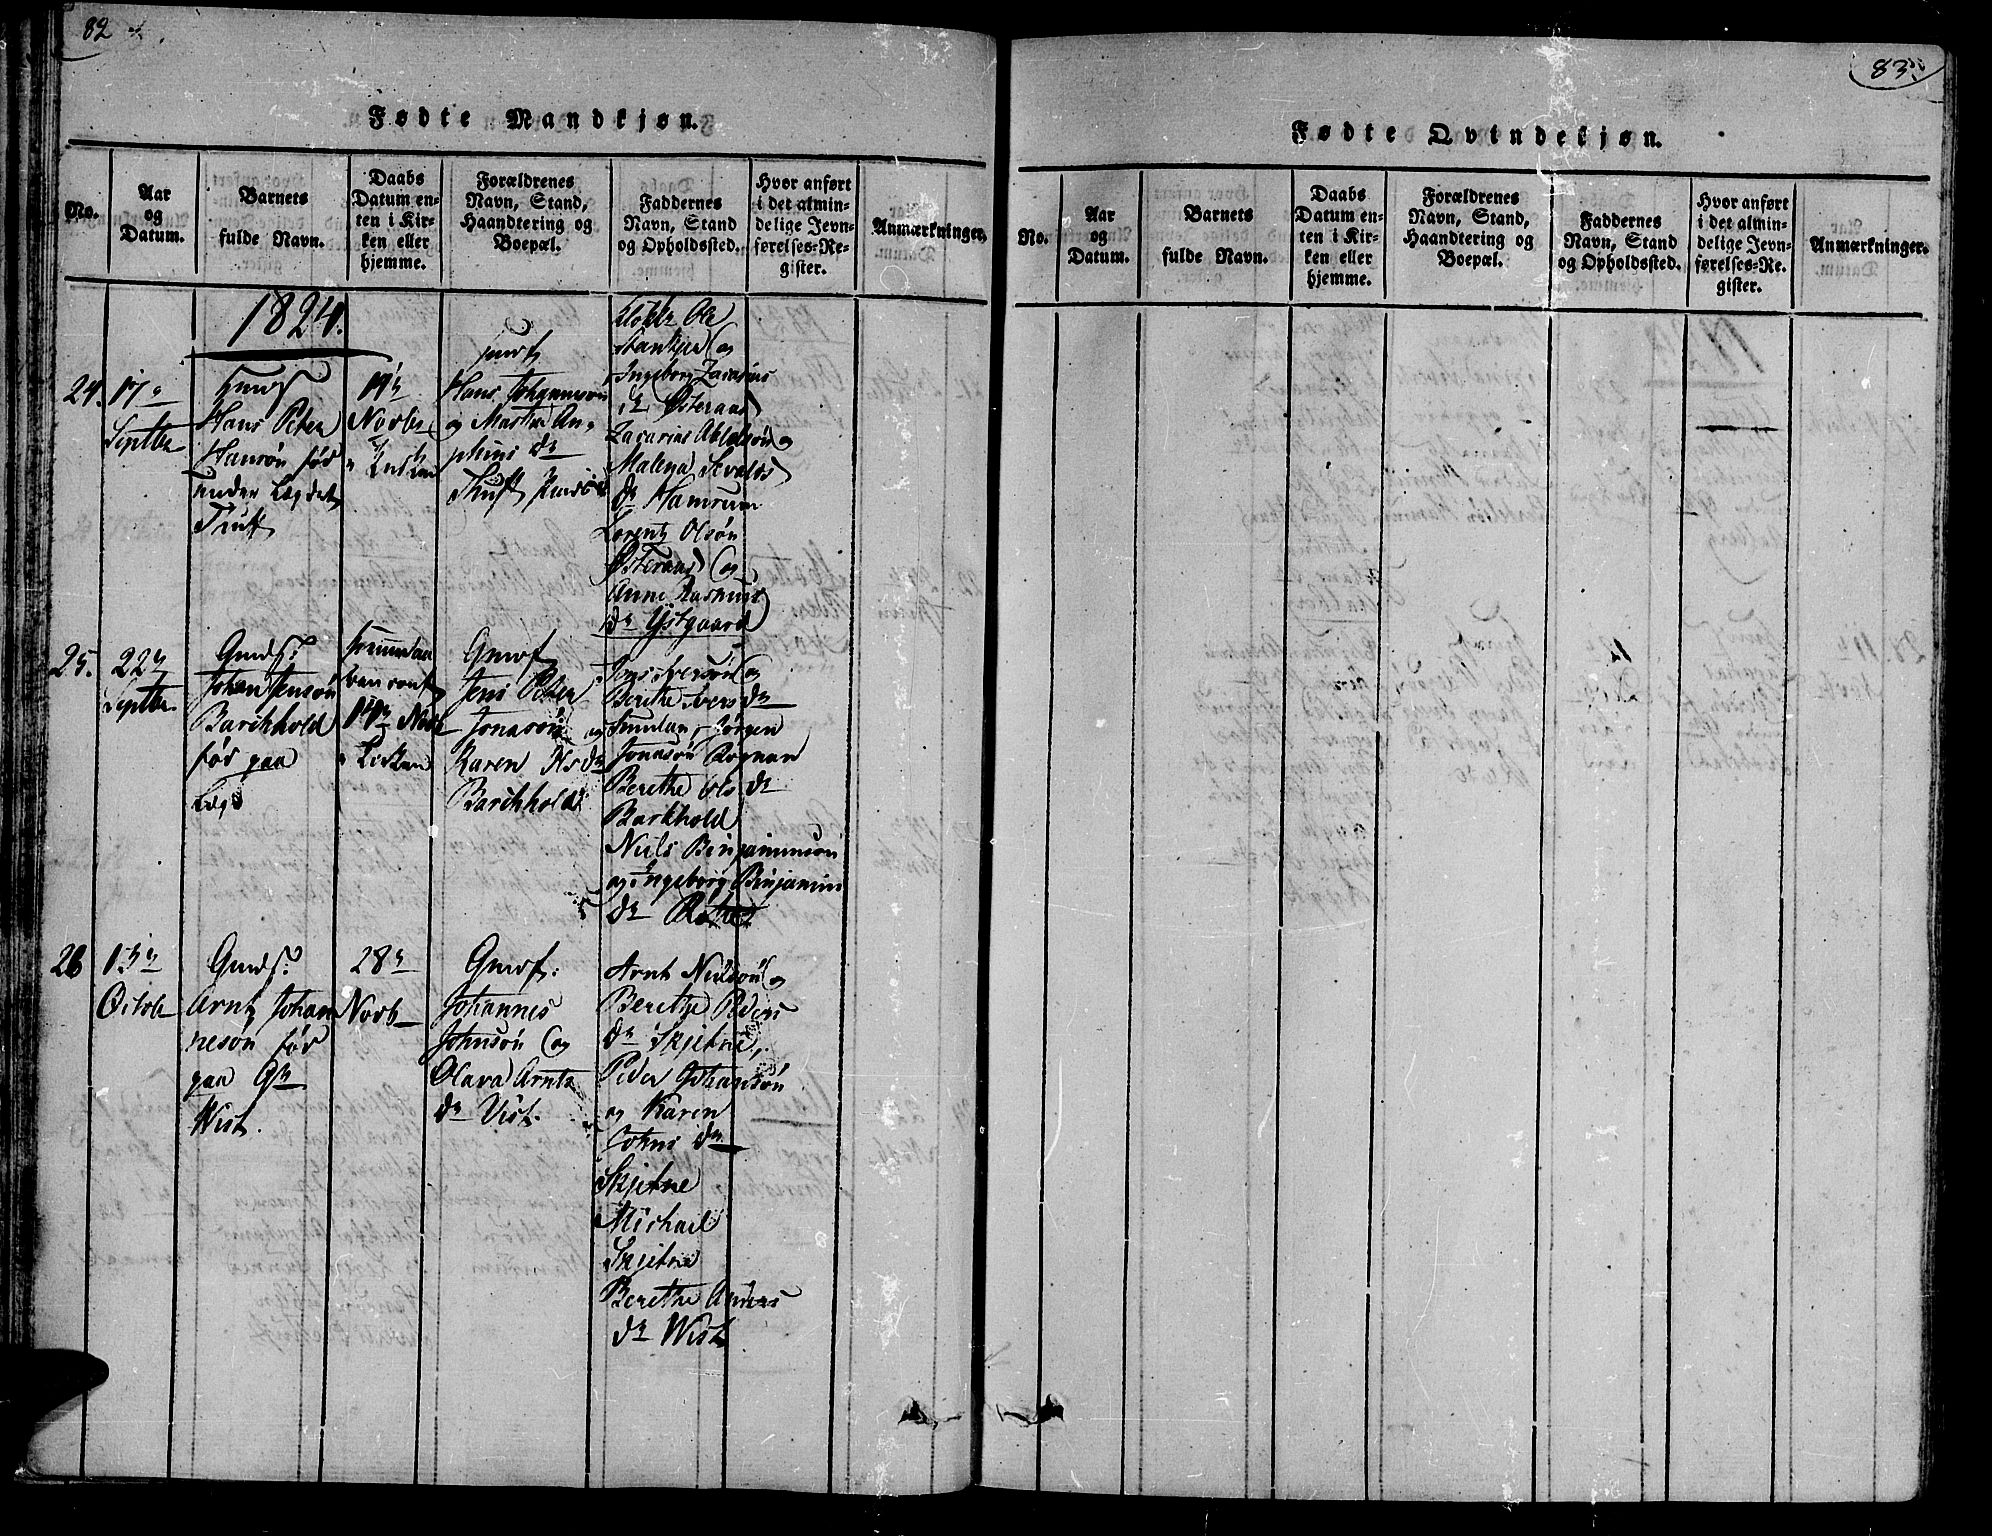 82
Fødte Mandkjøn.
No.
Aar
og
Datum.
Barnets
fulde Navn.
Daabs
Datum en-
ten i Kir-
ken eller
hjemme.
Forældrenes
Navn, Stand,
Haandtering og
Boepæl.
Faddernes
Navn, Stand
og Opholdssted.
Hvor anført
i det almin-
delige Jevn-
førelses-Re-
gister.
Anmærkninger.
1824.
24.
17
Septbr
Hans Peter
Hansøn før
under Lægdet
14
Novbr
Kirken
Hans Johannson
og Martha An-
Klokker Ole
og
Ingeborg Zacarias
dr Østeraas
Zacarias Abelsøn og
Malena Sevalds
dr Hamrum
Lorentz Olsøn
Østeraas og
Anne Rasmus
dr Ystgaard
25.
22
Septbr
Gmds.
Johan Jensøn
Barchhold
før paa
Læg
14 Novbr
i Kirken
Gmd
Jens Peter
Jonasøn og
Karen Ols dr
Barchhold
Jens Iversøn og
Berethe Ivers dr
Jørgen
Jonasøn Rognan
Berethe Ols dr
Barkhold
Niels Binjaminson
og Ingeborg Binjamins
dr
26
13
Octobr
Gmds.
Arnt Johan
nesøn før
paa Gr
Wist.
28
Novbr
Gmd.
Johannes
Johnsøn og
Olava Arnts
dr Vist.
Arnt Nielsøn og
Berethe Peders
dr Skjetne,
Peder Johansøn
og Karen
Johns dr
Skjetne
Michael
Skjetne
Berethe Anders
dr Wist
83
Fødte Qvindekjøn.
No.
Aar
og
Datum.
Barnets
fulde Navn.
Daabs
Datum en-
ten i Kir-
ken eller
hjemme.
Forældrenes
Navn, Stand,
Haandtering og
Boepæl.
Faddernes
Navn, Stand
og Opholdssted.
Hvor anført
i det almin-
delige Jevn-
førelses-Re-
gister.
Anmærkninger.